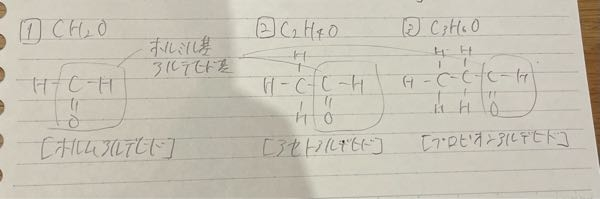 1 CH2O
ホルミル基
アルデヒド基
H-C-H
O
[ホルムアルデヒド]
2 C2H4O
H
H-C-C-H
H O
[アセトアルデヒド]
3 C3H6O
H H
H-C-C-C-H
H H O
[プロピオンアルデヒド]